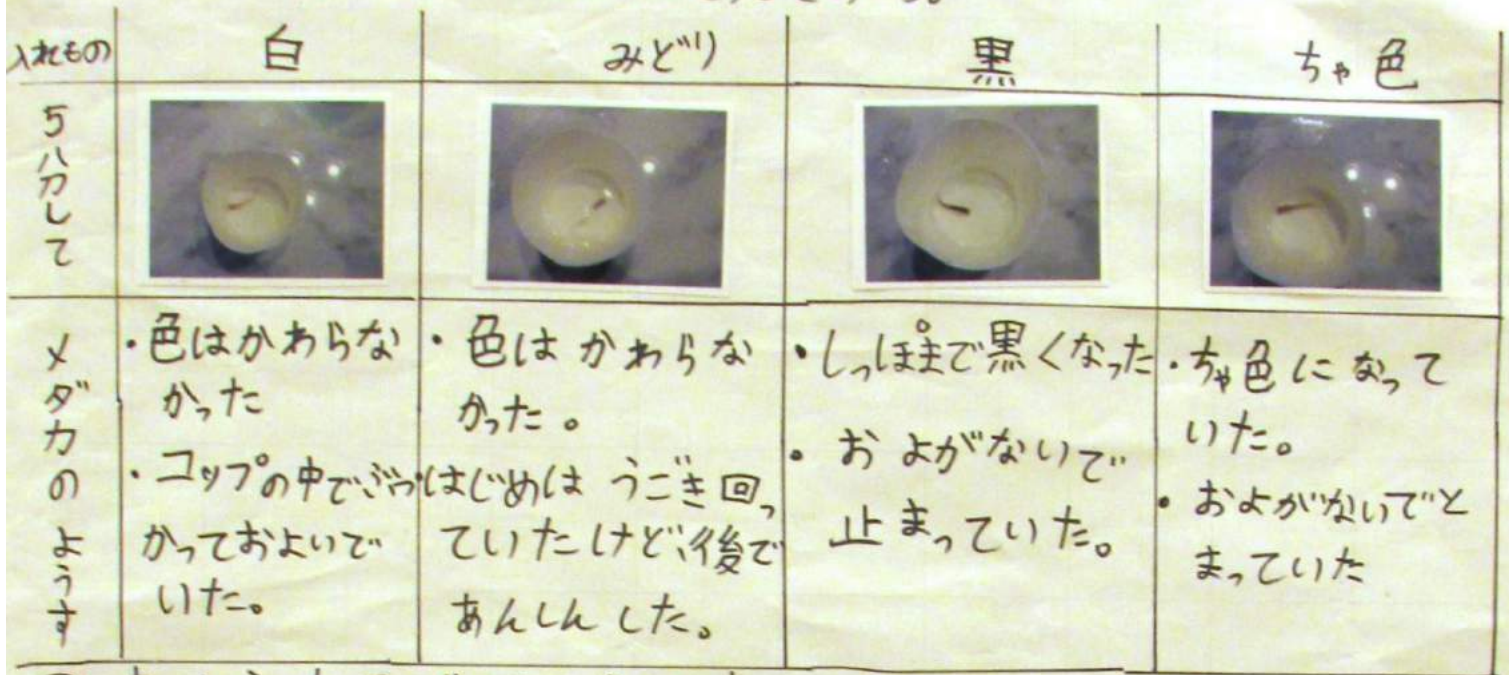 入れもの
白
みどり
黒
ちゃ色
5分して
メダカのようす
・色はかわらな
かった
・コップの中でぶつ
かっておよいで
いた。
・色はかわらな
かった。
・はじめはうごき回っ
ていたけど、後で
あんしんした。
・しっぽまで黒くなった
・およがないで
止まっていた。
・ちゃ色になって
いた。
・およがないでと
まっていた